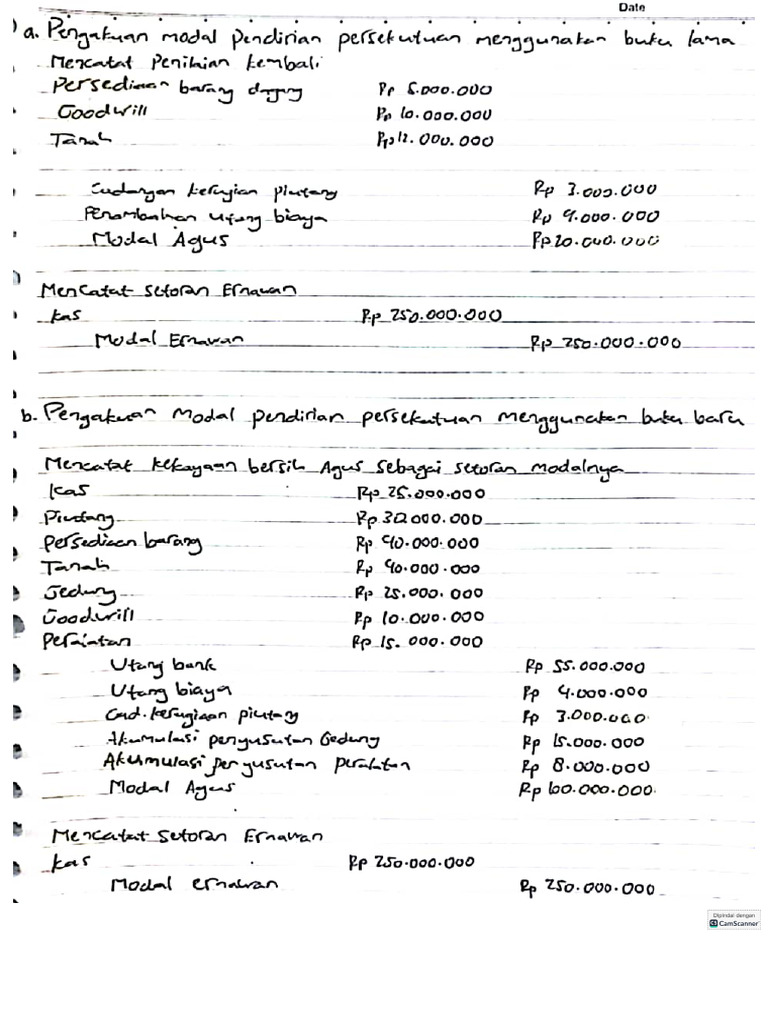 Date
) a. Pengakuan modal pendirian persekutuan menggunakan buku lama
Mencatat Penilaian kembali
Persediaan barang dagang Rp 5.000.000
Goodwill Rp 10.000.000
Tanah Rp 12.000.000
Cadangan kerugian piutang Rp 3.000.000
Penambahan utang biaya Rp 4.000.000
Modal Agus Rp 20.000.000
Mencatat setoran Ernawan
Kas Rp 250.000.000
Modal Ernawan Rp 250.000.000
b. Pengakuan Modal pendirian persekutuan menggunakan buku baru
Mencatat kekayaan bersih Agus sebagai setoran modalnya
Kas Rp 25.000.000
Piutang Rp 30.000.000
Persediaan barang Rp 40.000.000
Tanah Rp 40.000.000
Gedung Rp 25.000.000
Goodwill Rp 10.000.000
Peralatan Rp 15.000.000
Utang bank Rp 55.000.000
Utang biaya Rp 4.000.000
Cad. kerugian piutang Rp 3.000.000
Akumulasi penyusutan Gedung Rp 15.000.000
Akumulasi penyusutan peralatan Rp 8.000.000
Modal Agus Rp 100.000.000
Mencatat Setoran Ernawan
Kas Rp 250.000.000
Modal ernawan Rp 250.000.000
Dipindai dengan
CamScanner